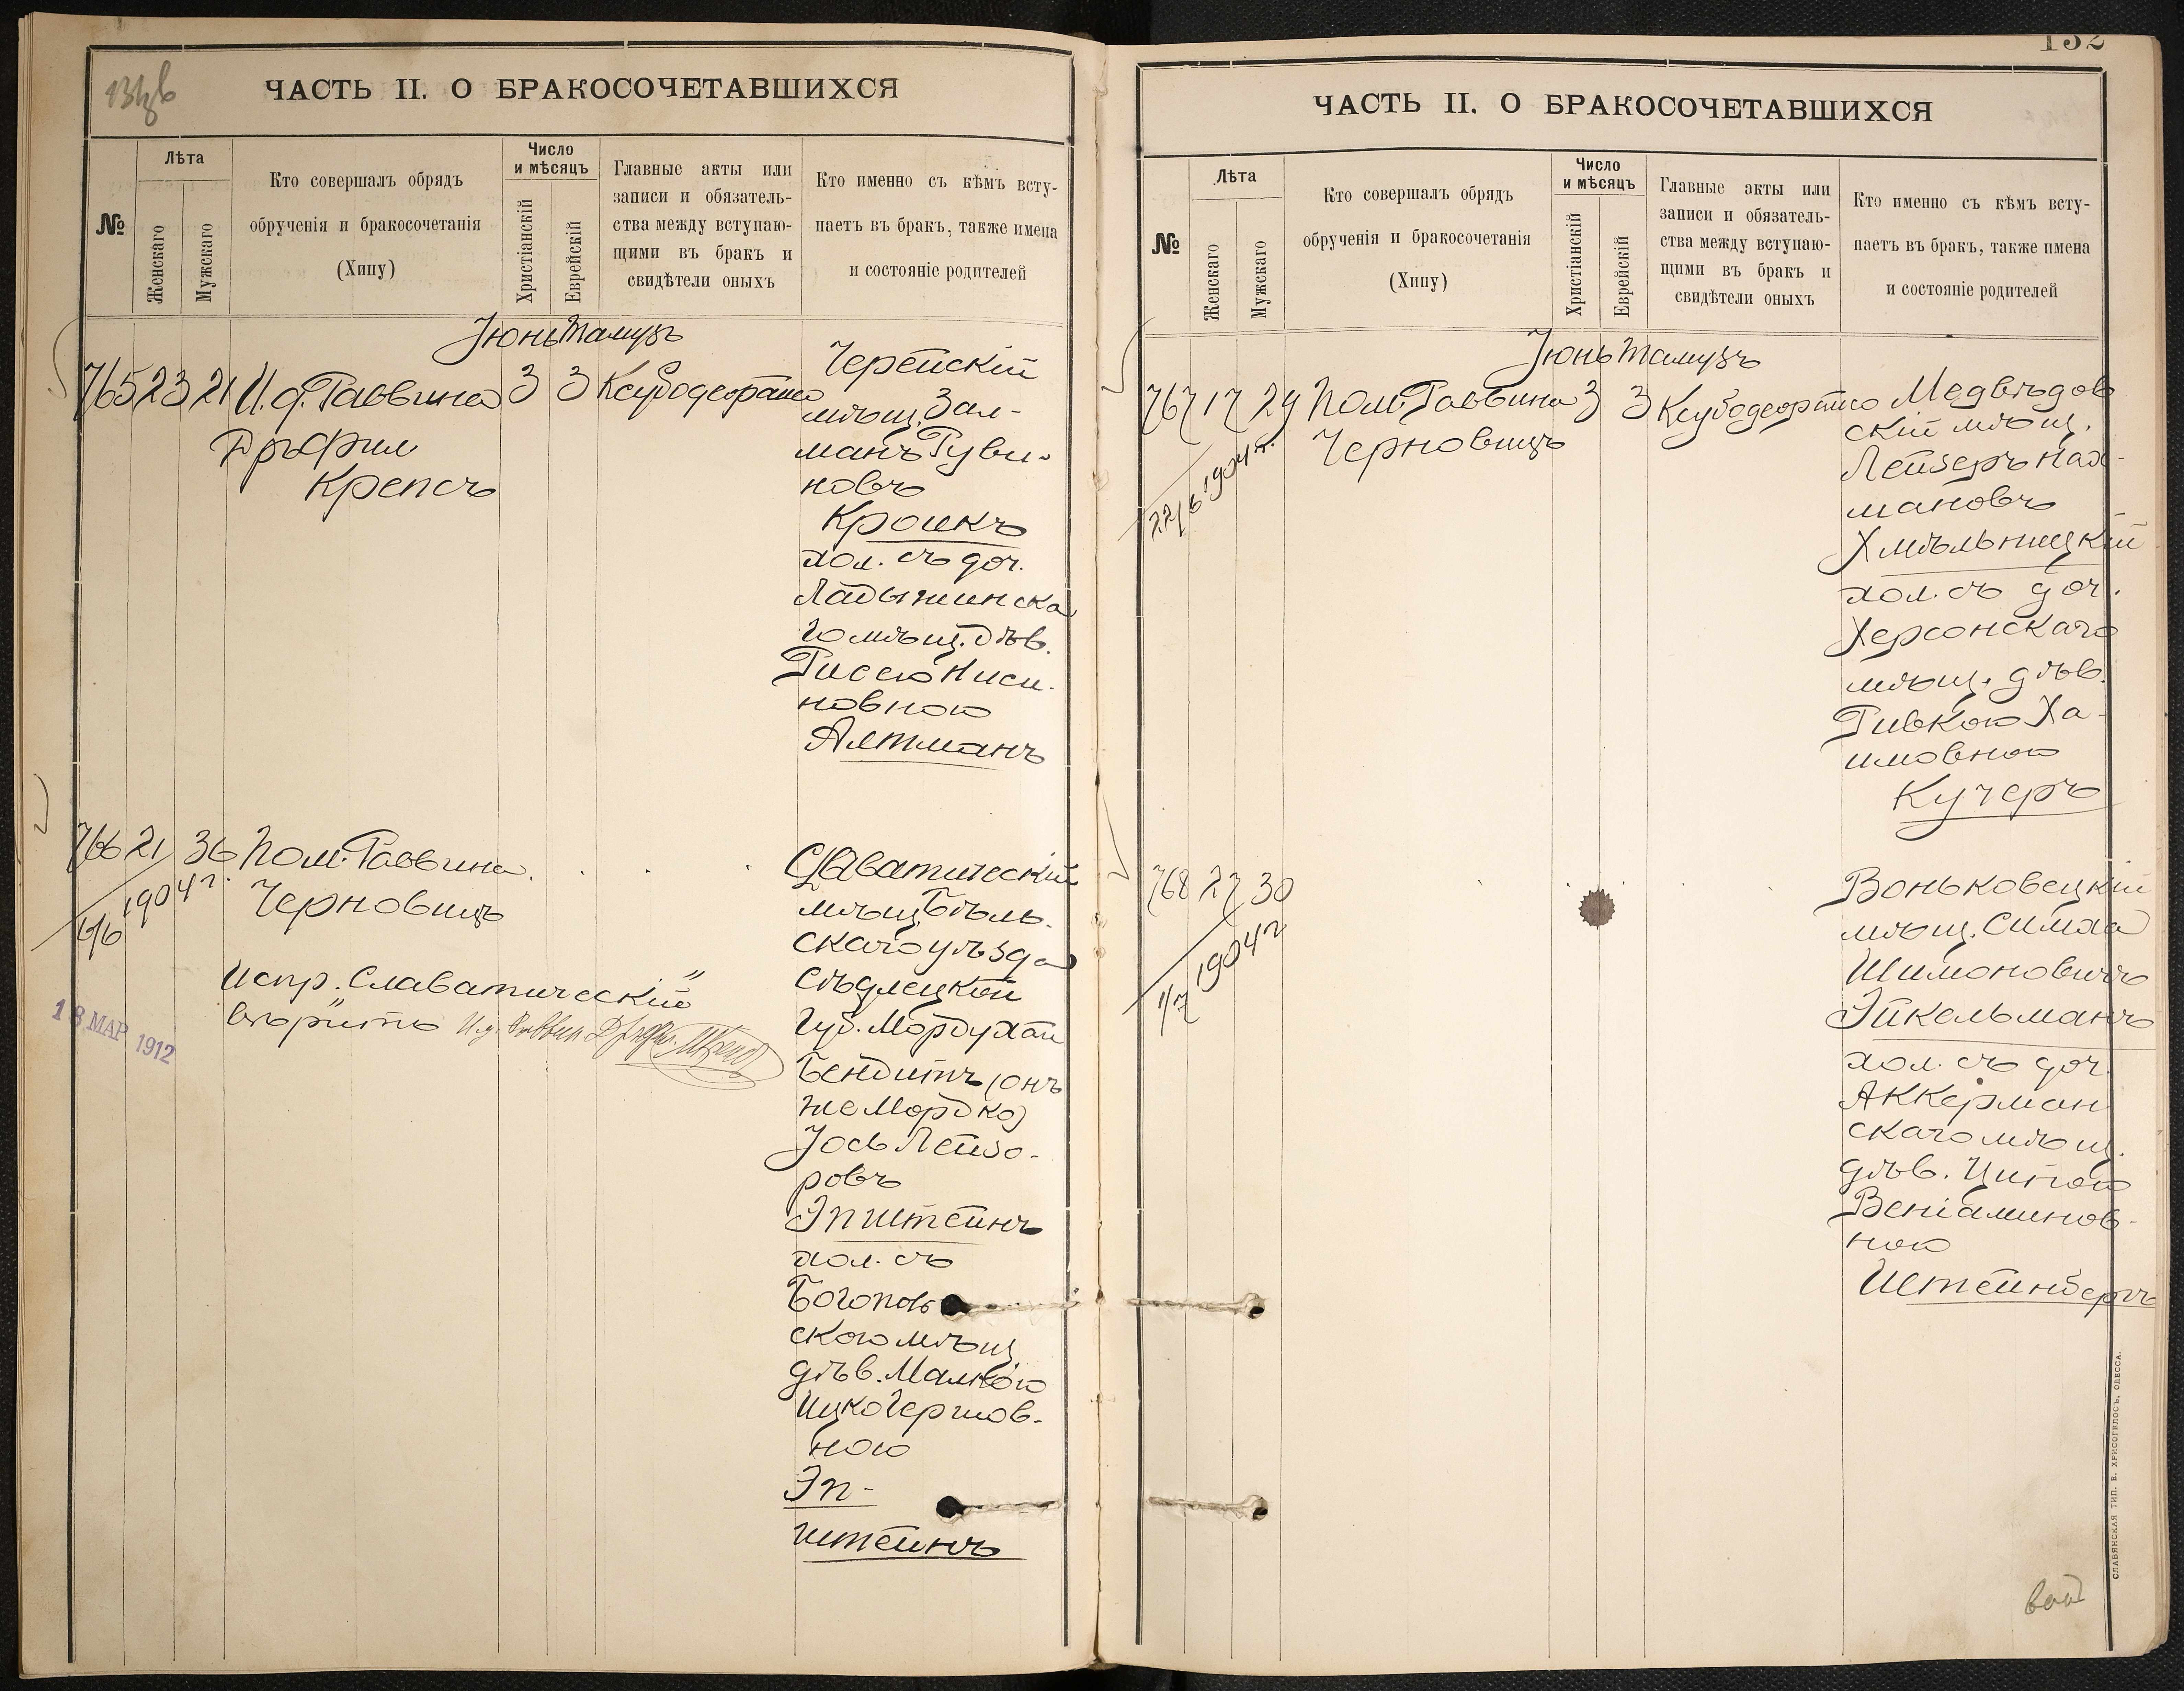 ЧАСТЬ II. О БРАКОСОЧЕТАВШИХСЯ
№
Лѣта
Женскаго
Мужскаго
Кто совершалъ обрядъ
обрученія и бракосочетанія
(Хипу)
Число
и мѣсяцъ
Христіанскій
Еврейскій
Главные акты или
записи и обязатель-
ства между вступаю-
щими въ бракъ и
свидѣтели оныхъ
Кто именно съ кѣмъ всту-
паетъ въ бракъ, также имена
и состояніе родителей
Іюнь Тамузъ
765 23 21 И. д. Раввина 3 3
Дръ Фил
Крепсъ
Черейскій
мѣщ. Зал-
манъ Руви-
новъ
Кроикъ
хол. съ доч.
Ладыжинска
го мѣщ. дѣв.
Риссею Ниси-
новною
Алтманъ
766 21 36 Пом. Раввина
Черновицъ
6/6 1904 г.
Испр. "Славатический"
вѣрить И. д. Раввин. Дръ Фил.
18 МАР 1912
Славатический
мѣщ. Бѣль-
скаго уѣзда
Сѣдлецкой
Губ. Мордухай
Бендитъ (онъ
же Мордко)
Іось Лейзо-
ровъ
Эпштейнъ
хол. съ
Богопольс
кого мѣщ.
дѣв. Малкою
Ицко Гершов-
ною
Эп-
штейнъ
132
ЧАСТЬ II. О БРАКОСОЧЕТАВШИХСЯ
№
Лѣта
Женскаго
Мужскаго
Кто совершалъ обрядъ
обрученія и бракосочетанія
(Хипу)
Число
и мѣсяцъ
Христіанскій
Еврейскій
Главные акты или
записи и обязатель-
ства между вступаю-
щими въ бракъ и
свидѣтели оныхъ
Кто именно съ кѣмъ всту-
паетъ въ бракъ, также имена
и состояніе родителей
Іюнь Тамузъ
767 17 29 Пом. Раввина 3 3
Черновицъ
22/6 1904 г.
Медвѣдов
скій мѣщ.
Лейзеръ Нах-
мановъ
Хмѣльницкій
хол. съ доч.
Херсонскаго
мѣщ. дѣв.
Ривкою Ха-
имовною
Кучеръ
768 27 30
1/7 1904 г
Воньковецкій
мѣщ. Симха
Шимоновичъ
Эйкельманъ
хол. съ доч.
Аккерман
скаго мѣщ.
дѣв. Ципою
Веніаминов-
ною
Штейнбергъ
СЛАВЯНСКАЯ ТИП. Е. ХРИСОГЕЛОСЪ, ОДЕССА.